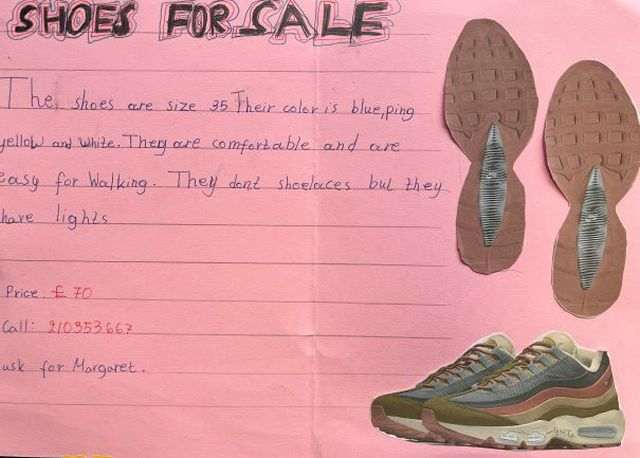 SHOES FOR SALE
The shoes are size 35 Their color is blue, ping
yellow and white. They are comfortable and are
easy for walking. They dont shoelaces but they
have lights
Price £ 70
Call: 210353667
ask for Margaret.